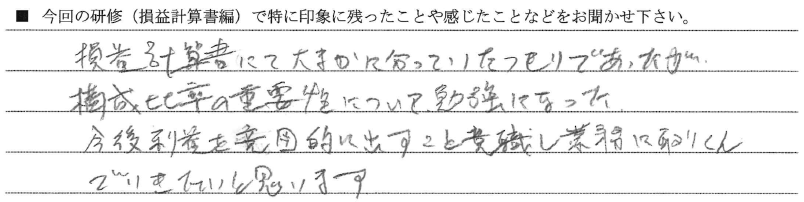 ■ 今回の研修（損益計算書編）で特に印象に残ったことや感じたことなどをお聞かせ下さい。
損益計算書にて大まかに分っていたつもりであったが、
構成比率の重要性について勉強になった
今後利益を意図的に出すこと意職し業務に取りくん
でいきたいと思います